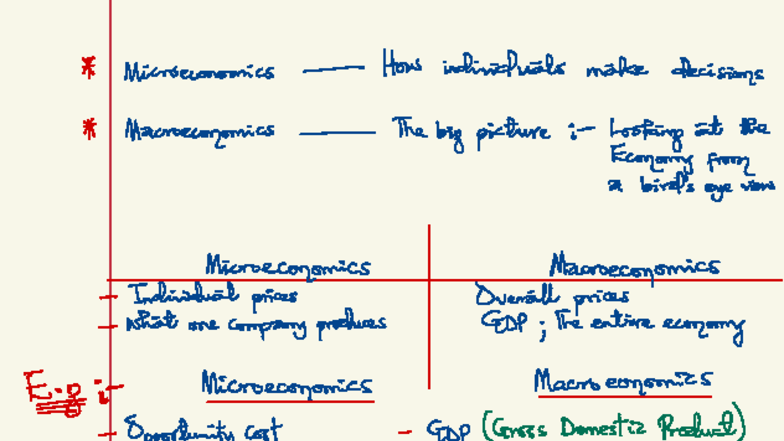 * Microeconomics — How individuals make decisions
* Macroeconomics — The big picture :- Looking at the
Economy from
a bird's eye view
Microeconomics Macroeconomics
- Individual prices Overall prices
- What one company produces GDP ; The entire economy
E.g :- Microeconomics Macroeconomics
- Opportunity cost - GDP (Gross Domestic Product)